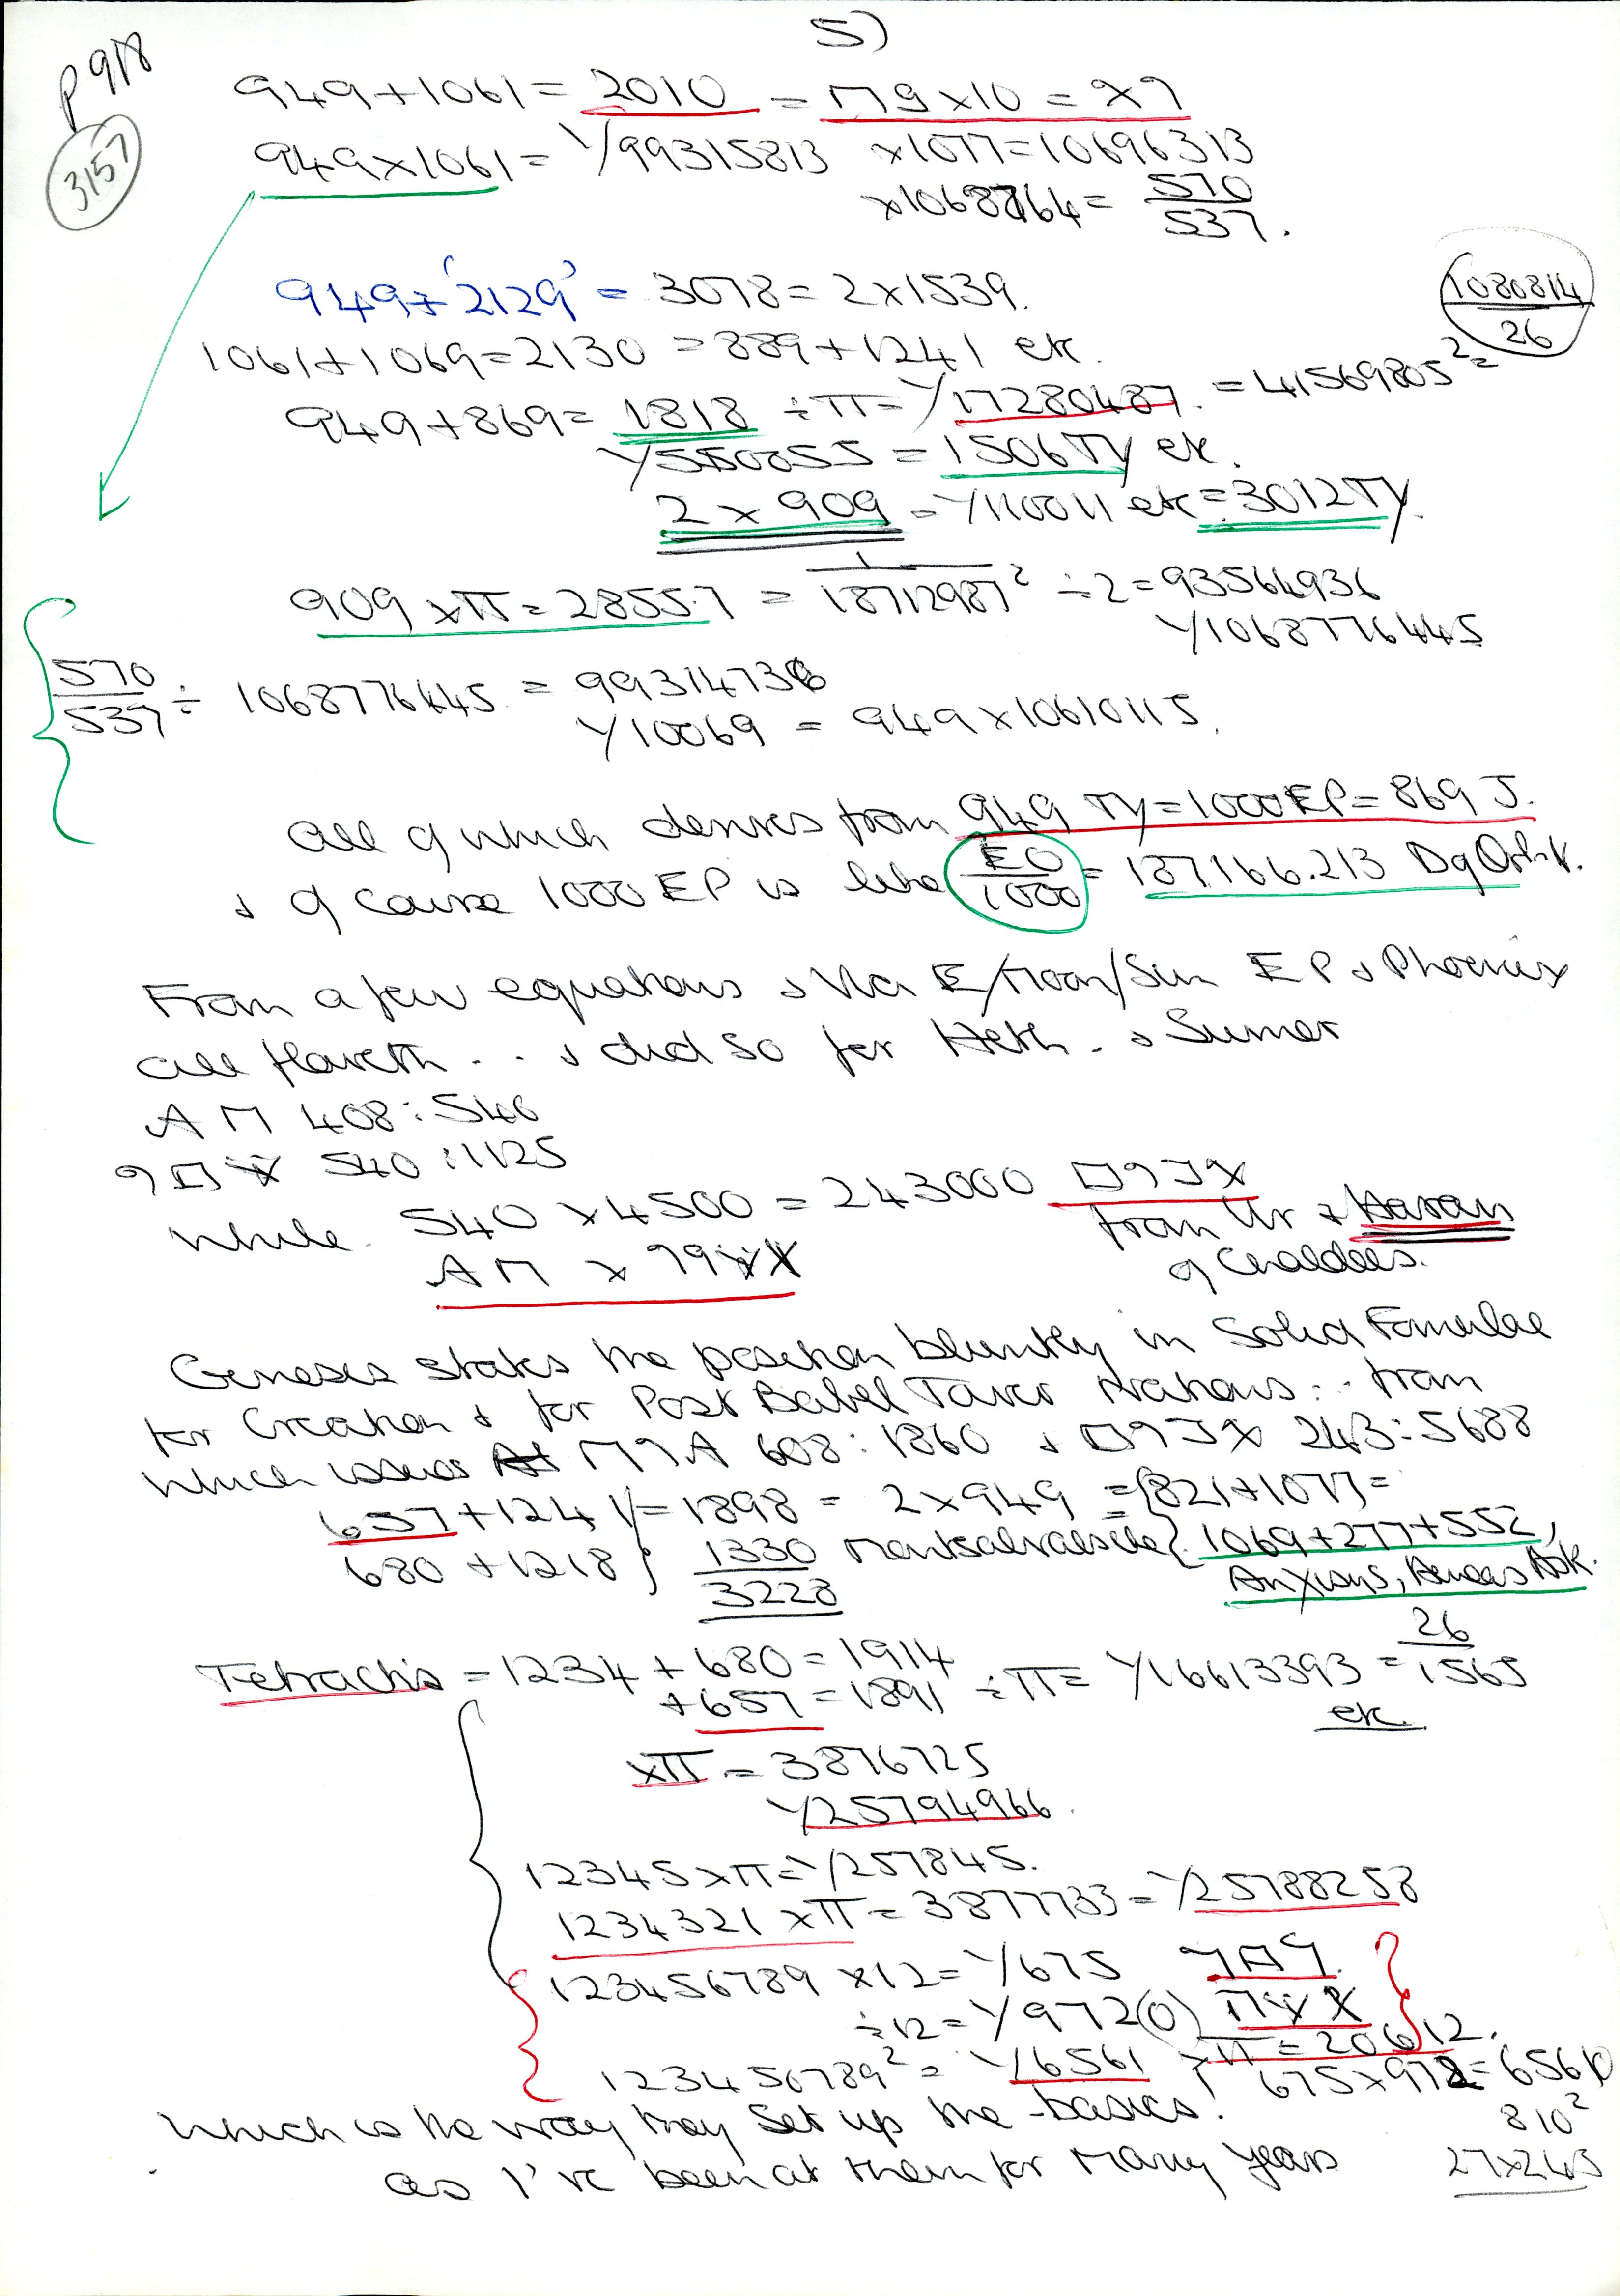 5)
P 918
3157
949+1061 = 2010 = 
949×1061 = 1/99315813 ×1077=10696313
×1068764= 570/537.
949+'2129' = 3078 = 2×1539.
1080814/26
1061+1069=2130 = 889+1241 etc.
949+869= 1818 ÷π= 1/17280487. = 41569805²=
1/550055 = 1506TY etc.
2 × 909 = 1/110011 etc = 3012TY.
909 ×π= 2855.7 = 1/18712987² ÷2=93564936
1/1068776445
570/537 ÷ 1068776445 = 993147386
1/10069 = 949×10610115.
All of which derives from 949 TY=1000EP=869 J.
& of course 1000 EP is like EO/1000 = 187.166.213 Dg Orbit.
From a few equations & Via E/Moon/Sun EP & Phoenix
all floweth.. & did so for Heth. & Sumer
540 : 1125
while 540 × 4500 = 243000
from Ur & Haran
of Chaldees.
Genesis states the position bluntly in Solid Formulae
for Creation & for Post Babel Tower Nations: from
which issues 608:1860 & 243:5688
657+1241 = 1898 = 2×949 = {821+1077=
680 +1218 } 1330/3228 {1069+277+552,
Anxious, Aeneas Ask.
Tetractis = 1234 + 680 = 1914
+657 = 1891 ÷π= 1/16613393 = 26/1565
etc.
×π = 3876725
1/25794966.
12345×π=1/257845.
1234321 ×π= 3877733=1/25788258
123456789 ×12= 1/675
÷12= 1/972(0)
123456789² = 1/6561 ×π = 20612.
675×972=65610
810²
27×243
which is the way they set up the basics!
as I've been at them for many years